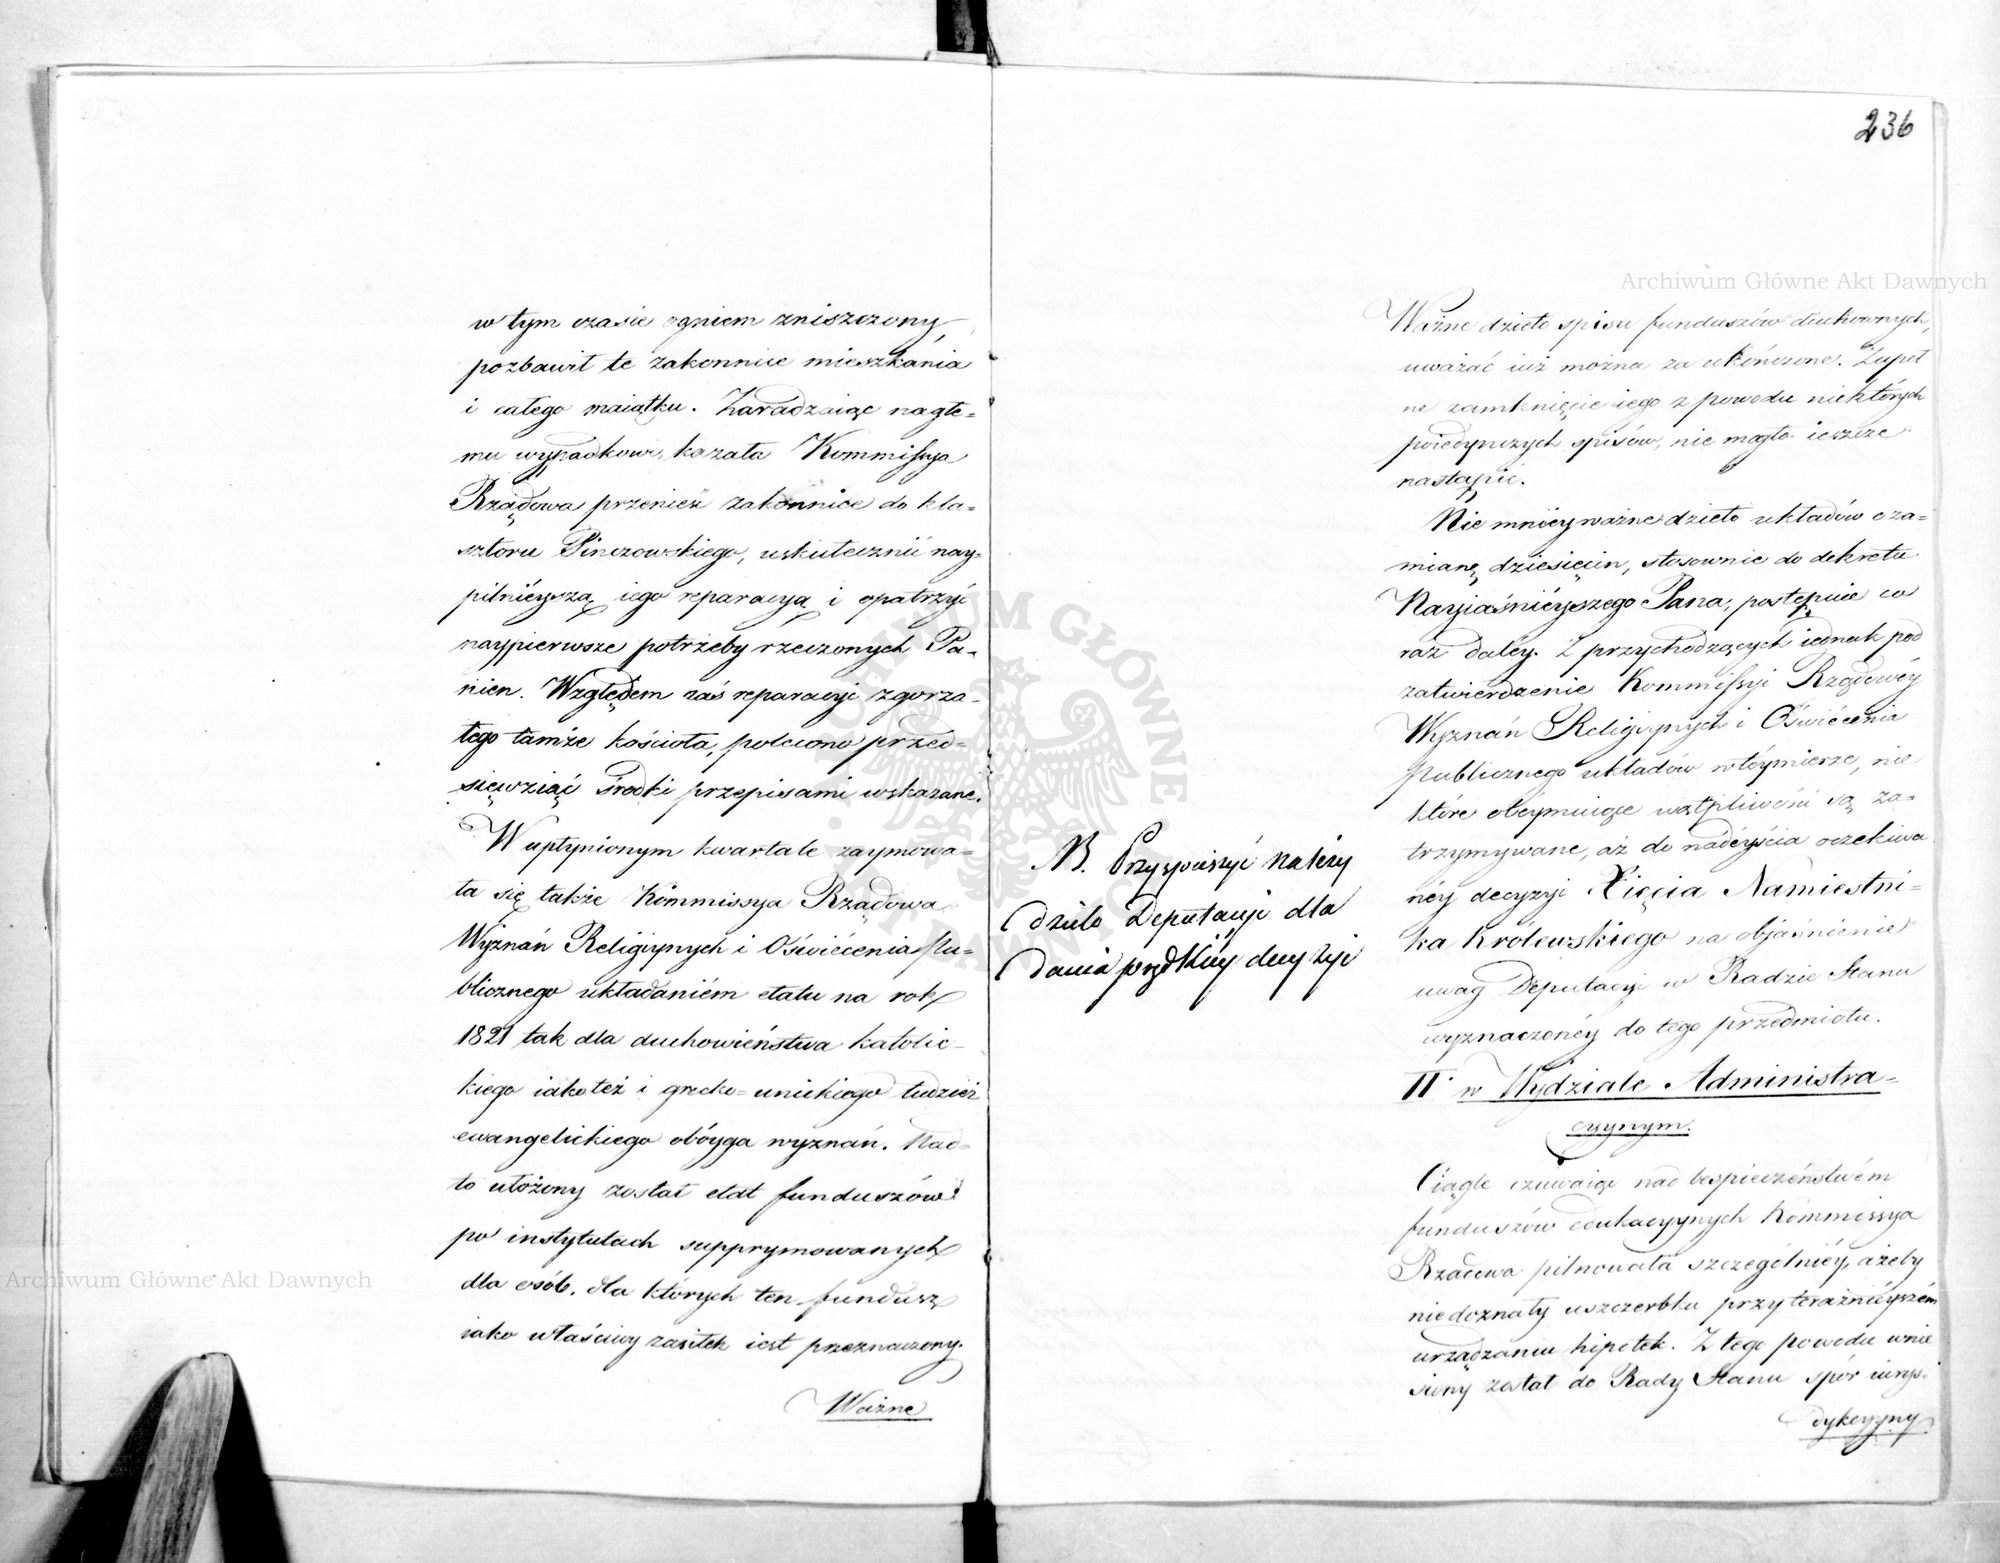 w tym czasie ogniem zniszczony,
pozbawił te zakonnice mieszkania
i całego maiątku. Zaradzaiąc nagłe-
mu wypadkowi, kazała Kommissya
Rządowa przenieść zakonnice do kla-
sztoru Pinczowskiego, uskutecznić nay-
pilnieyszą iego reparacyą i opatrzyć
naypierwsze potrzeby rzeczonych Pa-
nien. Względem zaś reparacyi zgorza-
łego tamże kościoła, polecono przed-
sięwziąć środki przepisami wskazane.
W upłynionym kwartale zaymowa-
ła się także Kommissya Rządowa
Wyznań Religiynych i Oświécenia Pu-
blicznego układaniém etatu na rok
1821 tak dla duchowieństwa katolic-
kiego iako też i grecko-unickiego tudzież
ewangelickiego obóyga wyznań. Nad-
to ułożony został etat funduszów
po instytutach supprymowanych
dla osób, dla których ten fundusz
iako właściwy zasiłek iest przeznaczony.
Ważne
236
Archiwum Główne Akt Dawnych
Ważne dzieło spisu funduszów duchownych,
uważać iuż można za ukończone. Zupeł
ne zamknięcie iego z powodu niektórych
poiedynczych spisów, nie mogło ieszcze
nastąpić.
Nie mniéy ważne dzieło układów o za-
mianę dziesięcin, stosownie do dekretu
Nayiaśnieyszego Pana, postępuie co
raz daléy. Z przychodzących iednak pod
zatwierdzenie Kommissyi Rządowéy
Wyznań Religiynych i Oświécenia
Publicznego układów w téy mierze, nie
które obeymuiące wątpliwości są za-
trzymywane, aż do nadéyścia oczekiwa
néy decyzyi Xięcia Namiestni-
ka Królewskiego na objaśnienie
uwag Deputacyi w Radzie Stanu
wyznaczonéy do tego przedmiotu.
II. w Wydziale Administra-
cyynym.
Ciągle czuwaiąc nad bespieczeństwém
funduszów edukacyynych Kommissya
Rządowa pilnowała szczególniéy, ażeby
niedoznały uszczerbku przy teraźnieyszém
urządzaniu hipotek. Z tego powodu wnie
siony został do Rady Stanu spór iurys-
dykcyyny
NB. Przyspieszyć należy
dzieło Deputacyi dla
dania prędkiey decyzyi
Archiwum Główne Akt Dawnych
ARCHIWUM GŁÓWNE AKT DAWNYCH